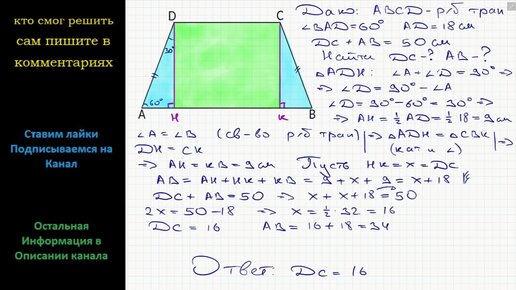 кто смог решить
сам пишите в
комментариях
Ставим лайки
Подписываемся на
Канал
Остальная
Информация в
Описании канала
D C
30°
60°
A H K B
Дано: ABCD - р/б трап
∠BAD=60° AD=18см
DC+AB=50см
Найти DC-? AB-?
△ADH: ∠A+∠D=90° ⇒
⇒ ∠D=90°-∠A
∠D=90°-60°=30° ⇒
⇒ AH=½AD=½·18=9см
∠A=∠B (св-во р/б трап) ⇒ △ADH=△CBK
DH=CK (кат и ∠)
⇒ AH=KB=9см Пусть HK=x=DC
AB=AH+HK+KB=9+x+9=x+18
DC+AB=50 ⇒ x+x+18=50
2x=50-18 ⇒ x=½·32=16
DC=16 AB=16+18=34
Ответ: DC=16